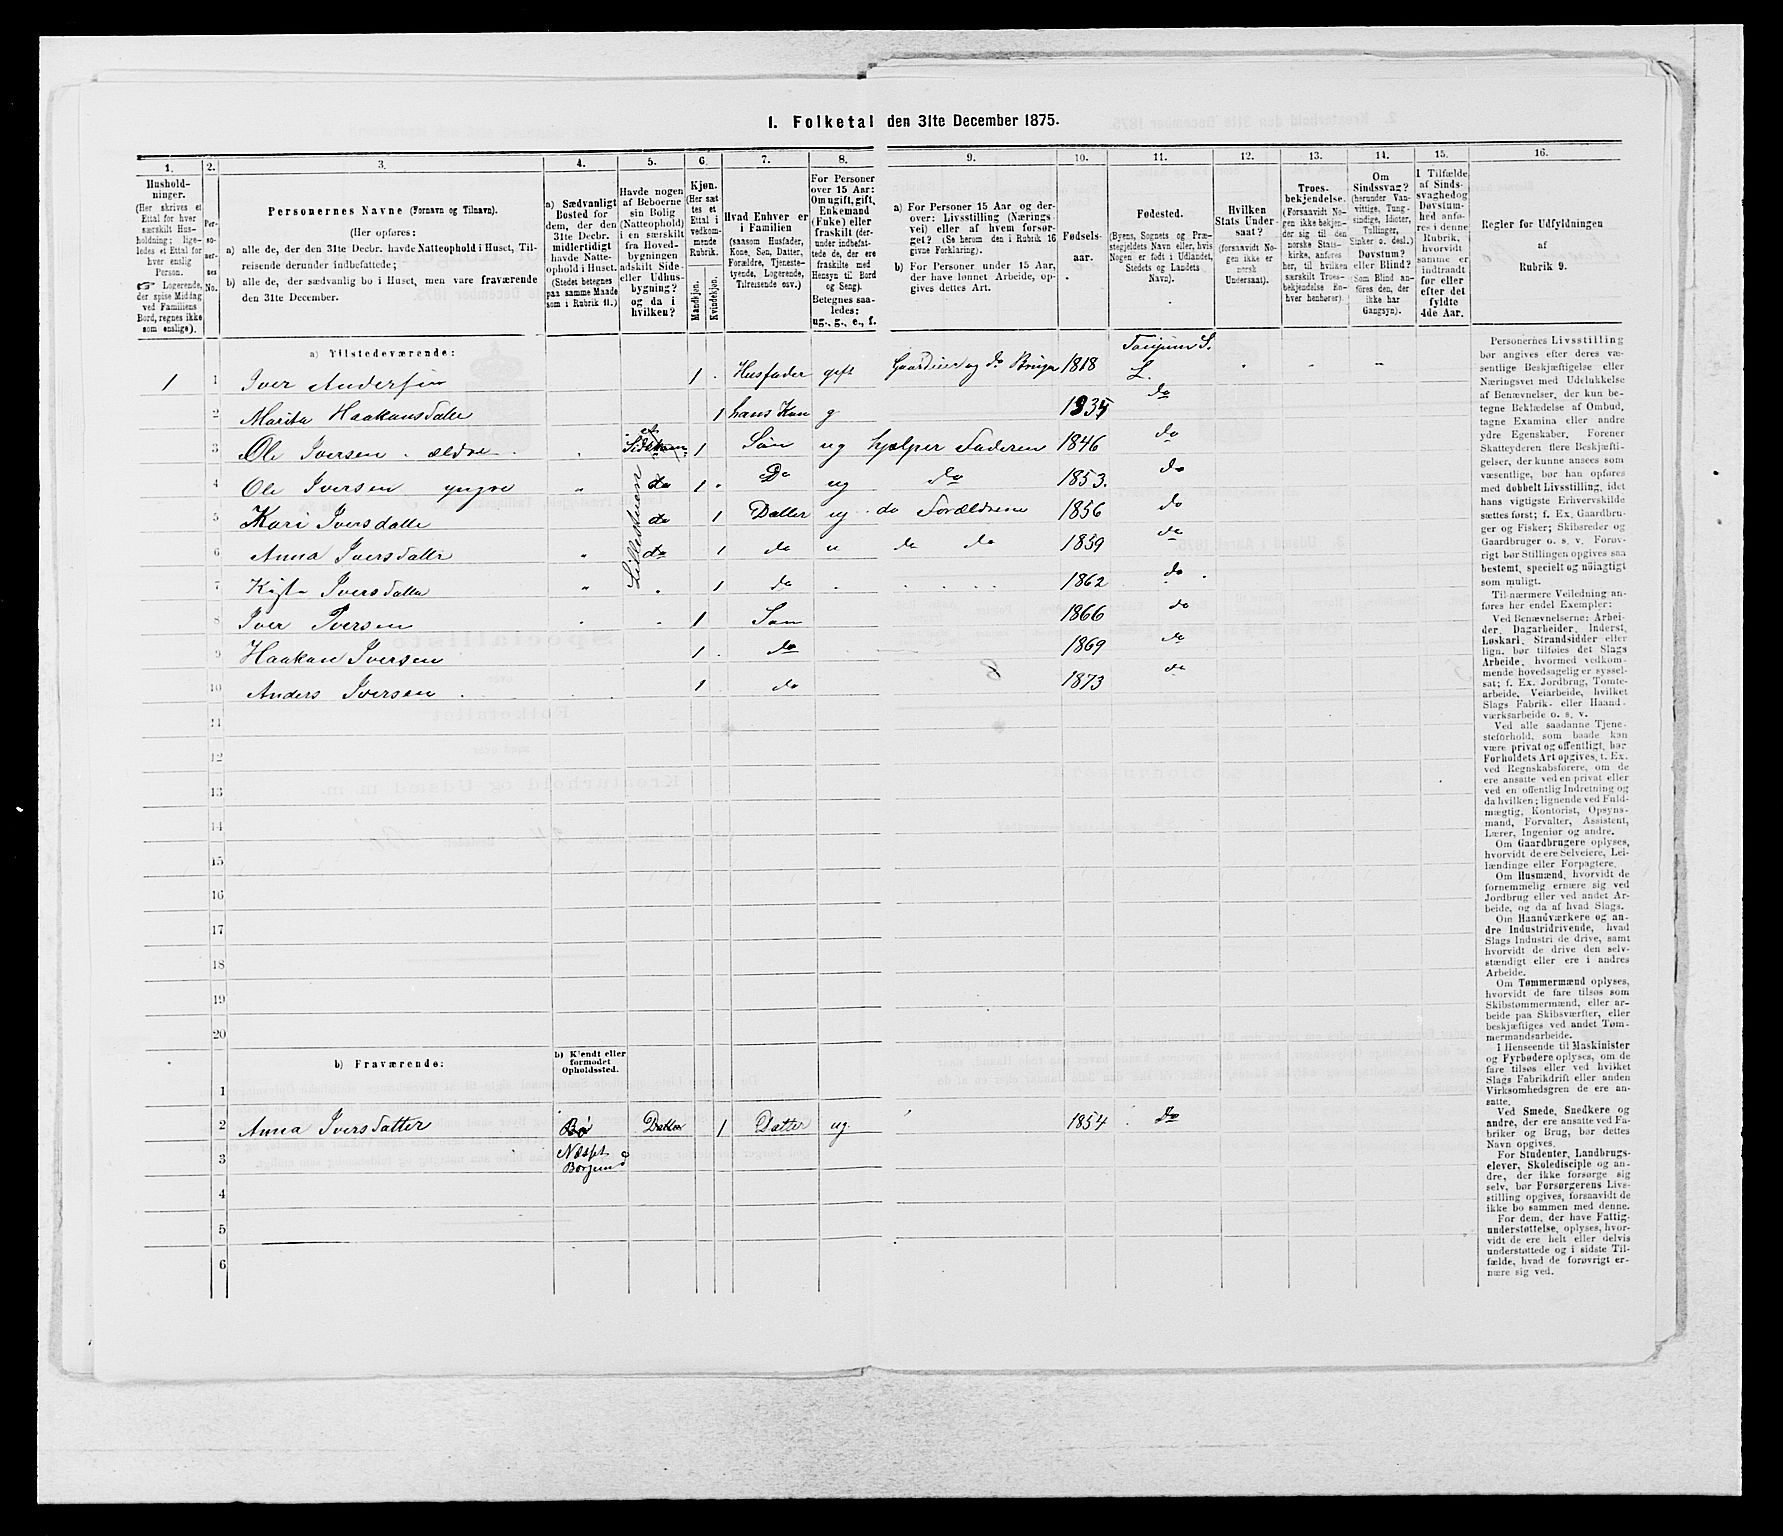 I. Folketal den 31te December 1875.
1. 2. 3. 4. 5. 6. 7. 8. 9. 10. 11. 12. 13. 14. 15. 16.
Hushold-
ninger.
(Her skrives et
Ettal for hver
særskilt Hus-
holdning; lige-
ledes et Ettal
for hver enslig
Person.
☞ Logerende,
der spise Middag
ved Familiens
Bord, regnes ikke
som enslige).
Per-
so-
ner-
nes
No.
Personernes Navne (Fornavn og Tilnavn).
(Her opføres:
a) alle de, der den 31te Decbr. havde Natteophold i Huset, Til-
reisende derunder indbefattede;
b) alle de, der sædvanlig bo i Huset, men vare fraværende
den 31te December.
a) Sædvanligt
Bosted for
dem, der den
31te Decbr.
midlertidigt
havde Natte-
ophold i Huset.
(Stedet betegnes
paa samme Maade
som i Rubrik 11.)
Havde nogen
af Beboerne
sin Bolig
(Natteophold)
i en særskilt
fra Hoved-
bygningen
adskilt Side-
eller Udhus-
bygning?
og da i
hvilken?
Kjøn.
(Her sæt-
tes et
Ettal i
vedkom-
mende
Rubrik.
Mandkjøn.
Kvindekjøn.
Hvad Enhver er
i Familien
(saasom Husfader,
Kone, Søn, Datter,
Forældre, Tjeneste-
tyende, Logerende,
Tilreisende osv.)
For Personer
over 15 Aar:
Om ugift, gift,
Enkemand
(Enke) eller
fraskilt (der-
under indbefat-
tede de, der ere
fraskilte med
Hensyn til Bord
og Seng).
Betegnes saa-
ledes:
ug., g., e., f.
a) For Personer 15 Aar og der-
over: Livsstilling (Nærings-
vei) eller af hvem forsør-
get? (Se herom den i Rubrik 16
givne Forklaring).
b) For Personer under 15 Aar,
der have lønnet Arbeide, op-
gives dettes Art.
Fødsels-
aar.
Fødested.
(Byens, Sognets og Præ-
stegjeldets Navn eller, hvis
Nogen er født i Udlandet,
Stedets og Landets
Navn).
Hvilken
Stats Under-
saat?
(forsaavidt No-
gen ikke er
norsk
Undersaat).
Troes-
bekjendelse.
(Forsaavidt No-
gen ikke bekjen-
der sig til den
norske Stats-
kirke, anføres
her, til hvilken
særskilt Troes-
bekjendelse En-
hver henhører).
Om
Sindssvag?
(herunder Van-
vittige, Tung-
sindige, Idioter,
Tullinger,
Sinker o. desl.)
Døvstum?
eller Blind?
(Som Blind an-
føres den, der
ikke har
Gangsyn).
I Tilfælde
af Sinds-
svaghed og
Døvstum-
hed anfø-
res i denne
Rubrik,
hvorvidt
samme er
indtraadt
før eller
efter det
fyldte
4de Aar.
Regler for Udfyldningen
af
Rubrik 9.
a) Tilstedeværende:
1 1 Iver Andersen 1 Husfader gift Gaardeier og do Bruger 1818 S. L.
2 Marita Haakansdatte 1 hans Kone g 1835 do
3 Ole Iversen ældre 1 Søn ug hjælper Faderen 1846 do
4 Ole Iversen yngre do 1 Do ug do 1853. do
5 Kari Iversdatte do 1 Datter ug do Forældrene 1856 do
6 Anna Iversdatte do 1 do u do do 1859 do
7 Iversdatte 1 do 1862 do
8 Iver Iversen 1 Søn 1866 do
9 Haakan Iversen 1 do 1869 do
10 Anders Iversen 1 do 1873 do
Lillestuen
11
12
13
14
15
16
17
18
19
20
b) Fraværende:
b) Kjendt eller
formodet
Opholdssted.
1
2 Anna Iversdatter Bø Datter 1 Datter ug. 1854 Do
3 Borgund
4
5
6
Personernes Livsstilling
bør angives efter deres væ-
sentlige Beskjæftigelse eller
Næringsvei med Udelukkelse
af Benævnelser, der kun be-
tegne Beklædelse af Ombud,
tagne Examina eller andre
ydre Egenskaber. Forener
Skatteyderen flere Beskjæfti-
gelser, der kunne ansees som
væsentlige, bør han opføres
med dobbelt Livsstilling, idet
hans vigtigste Erhvervskilde
sættes først; f. Ex. Gaardbru-
ger og Fisker; Skibsreder og
Gaardbruger o. s. v. Forøv-
rigt bør Stillingen opgives saa
bestemt, specielt og nöiagtigt
som muligt.
Til nærmere Veiledning an-
føres her endel Exempler:
Ved Benævnelserne: Arbei-
der, Dagarbeider, Inderst,
Løskari, Strandsidder eller
lign. bør tilføies det Slags
Arbeide, hvormed vedkom-
mende hovedsagelig er syssel-
sat; f. Ex. Jordbrug, Tomte-
arbeide, Veiarbeide, hvilket
Slags Fabrik- eller Haand-
værksarbeide o. s. v.
Ved alle saadanne Tjene-
steforhold, som baade kan
være privat og offentligt, bør
Forholdets Art opgives, t. Ex.
ved Regnskabsførere, om de
ere ansatte ved en privat eller
ved en offentlig Indretning og
da hvilken; lignende ved Fuld-
mægtig, Kontorist, Opsyns-
mand, Forvalter, Assistent,
Lærer, Ingeniør og andre.
Om Gaardbrugere oplyses,
hvorvidt de ere Selveiere, Lei-
lændinge eller Forpagtere.
Om Husmænd, hvorvidt de
fornemmelig ernære sig ved
Jordbrug eller ved andet Ar-
beide, og da af hvad Slags.
Om Haandværkere og an-
dre Industridrivende, hvad
Slags Industri de drive, samt
hvorvidt de drive den selv-
stændigt eller ere i andres
Arbeide.
Om Tømmermænd oplyses,
hvorvidt de fare tilsøs som
Skibstømmermænd, eller ar-
beide paa Skibsværfter, eller
beskjæftiges ved andet Tøm-
mermandsarbeide.
I Henseende til Maskinister
og Fyrbødere oplyses, om de
fare tilsøs eller ved hvilket
Slags Fabrikdrift eller anden
Virksomhedsgren de ere an-
satte.
Ved Smede, Snedkere og
andre, der ere ansatte ved Fa-
briker og Brug, bør dettes
Navn opgives.
For Studenter, Landbrugs-
elever, Skoledisciple og an-
dre, der ikke forsørge sig
selv, bør Forsørgerens Livs-
stilling opgives, forsaavidt de
ikke bo sammen med denne.
For dem, der have Fattig-
understøttelse, oplyses, hvor-
vidt de ere helt eller delvis
understøttede og i sidste Til-
fælde, hvad de forøvrigt er-
nære sig ved.